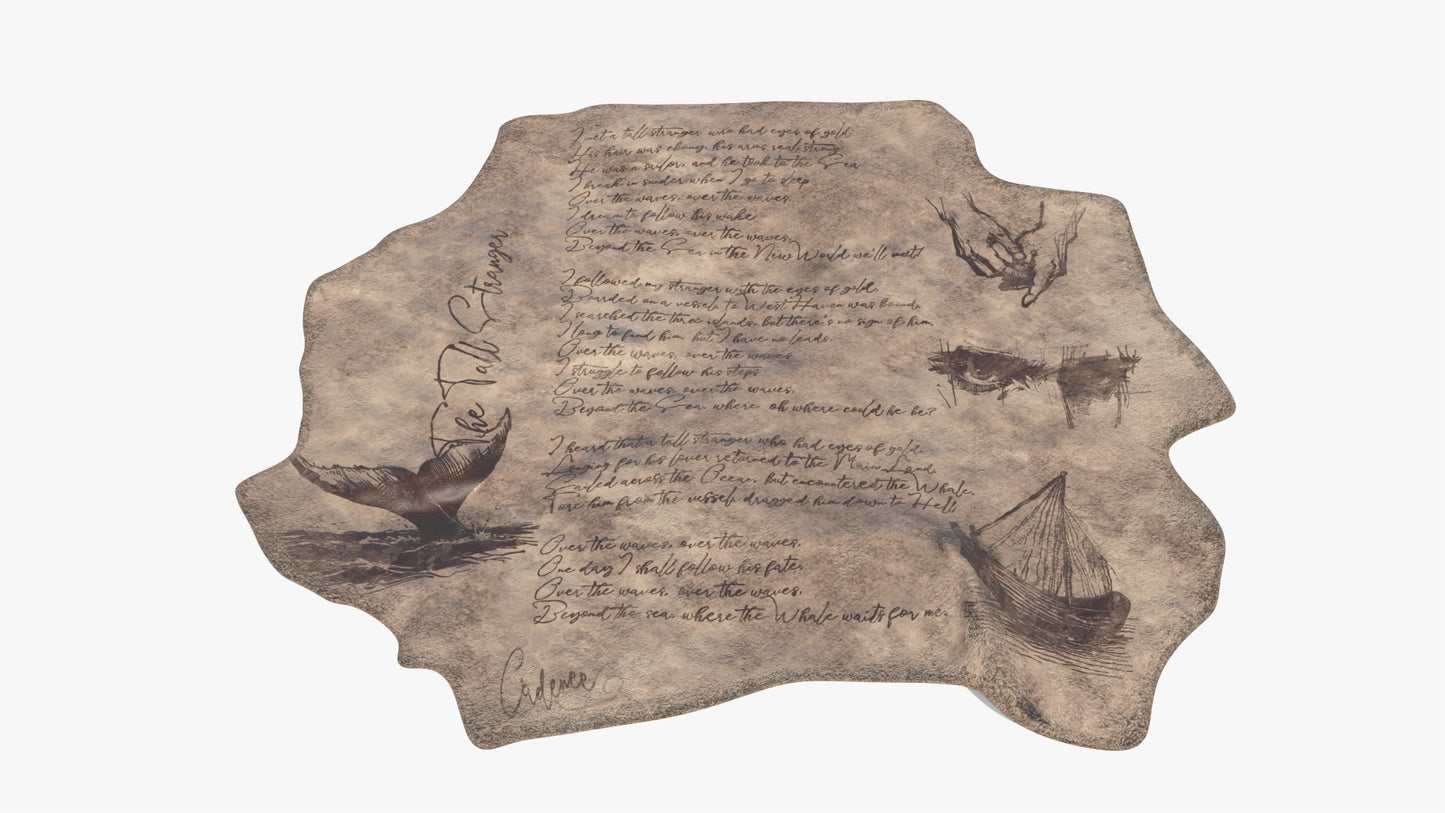 The Tall Stranger
I met a tall stranger who had eyes of gold,
His hair was ebony, his arms real strong
He was a sailor, and he took to the Sea
I break in sunder when I go to sleep
Over the waves, over the waves,
I dream to follow his wake
Over the waves, over the waves,
Beyond the Sea in the New World we'll meet!
I followed my stranger with the eyes of gold,
Boarded on a vessel, to West Haven was bound,
I searched the three islands, but there's no sign of him,
I long to find him, but I have no leads.
Over the waves, over the waves
I struggle to follow his steps
Over the waves, over the waves,
Beyond the Sea, where oh where could he be?
I heard that a tall stranger who had eyes of gold,
Longing for his lover returned to the Main Land,
Sailed across the Ocean, but encountered the Whale,
Tore him from the vessel, dragged him down to Hell
Over the waves, over the waves,
One day I shall follow his fate,
Over the waves, over the waves,
Beyond the sea, where the Whale waits for me.
Cadence